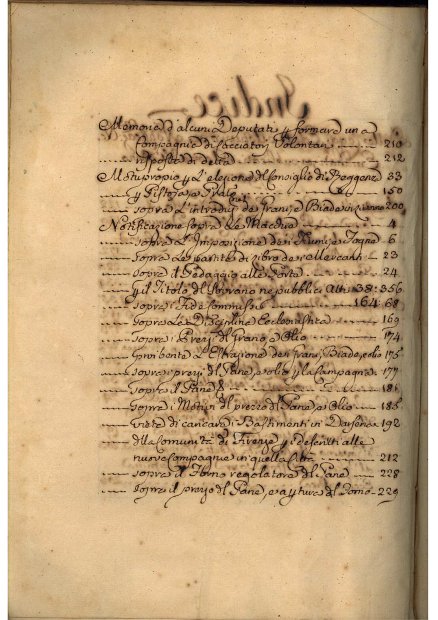 Memoria d'alcuni Deputati p formare una
Compagnia di Cacciatori Volontari 210
risposta di detta 212
Motuproprio p L'elezione del Consiglio di Reggenz 33
p Pistoja e Prato 150
sopra L'introduz de Grani, e Biade in 200
Notificazione sopra Le Macchie 4
sopra L'Imposizione dei Fiumi, e Fogne 6
sopra Le partite di libro dei Mercanti 23
sopra il Pedaggio alle Porte 24
p il Titolo del Sovrano ne pubblici Atti 38. 356
sopra i Fidecommissi 164. 68
sopra La Disciplina Ecclesiastica 169
sopra i Prezzi del Grano, e Olio 174
proibente L'Estrazione dei Grani, Biade, e olio 175
sopra i prezzi del Pane, e olio p la Campagna 177
sopra il Pane 181
sopra i Motivi del prezzo del Pane, e Olio 186
vieta di caricare i Bastimenti in Darsena 192
Alla Comunità di Firenze p i descritti alle
nuove Compagnie in quella Città 212
sopra il Forno regolatore del Pane 228
sopra il prezzo del Pane, e del Forno 229